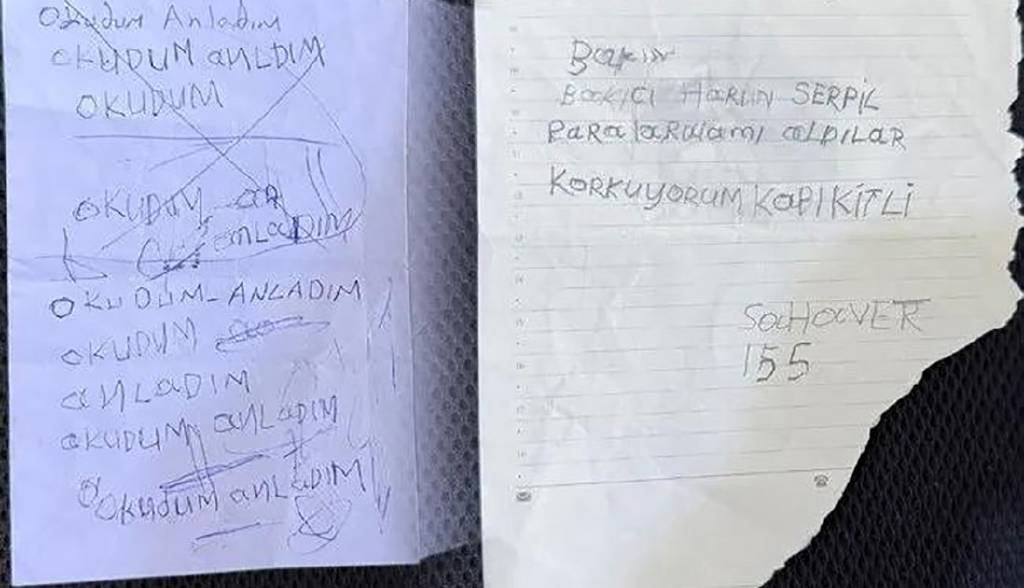 Okudum Anladım
OKUDUM aNLDIM
OKUDUM
OKUDUM aA
aNLaDIM
OKUDUM-ANLADIM
OKUDUM
aNLaDIM
OKUDUM aNLaDIM
OKUDUM aNLaDIM
BaKICI HaRUN SERPİL
PaRaLaRIMI aLDILAR
KORKUYORUM KAPI KİTLİ
SaHaVET
155